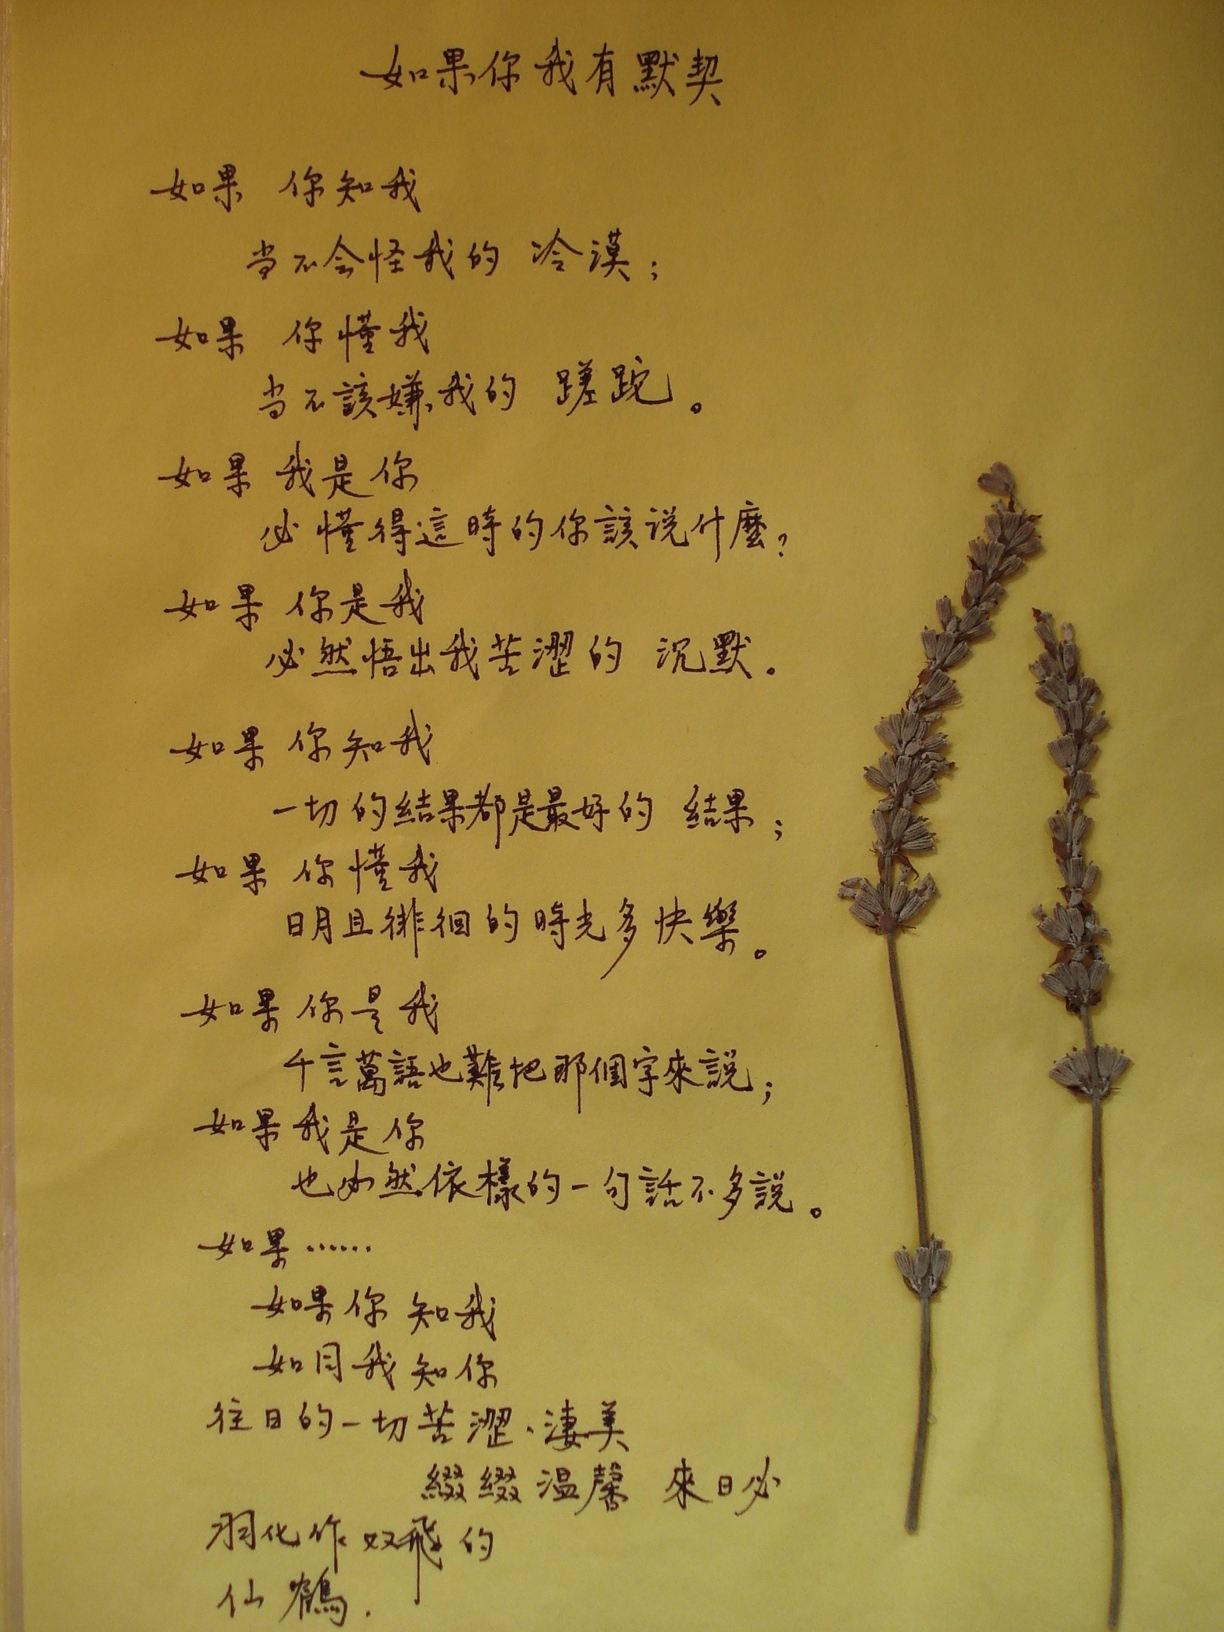 如果你我有默契
如果 你知我
当不会怪我的 冷漠；
如果 你懂我
当不該嫌我的 蹉跎。
如果 我是你
必懂得這時的你該说什麼？
如果 你是我
必然悟出我苦澀的 沉默。
如果 你知我
一切的結果都是最好的 結果；
如果 你懂我
日月且徘徊的時光多快樂。
如果 你是我
千言萬語也難把那個字來說；
如果 我是你
也必然依樣的一句話不多說。
如果……
如果你 知我
如同我 知你
往日的一切苦澀、淒美
綴綴温馨 來日必
羽化作 双飛的
仙鶴.